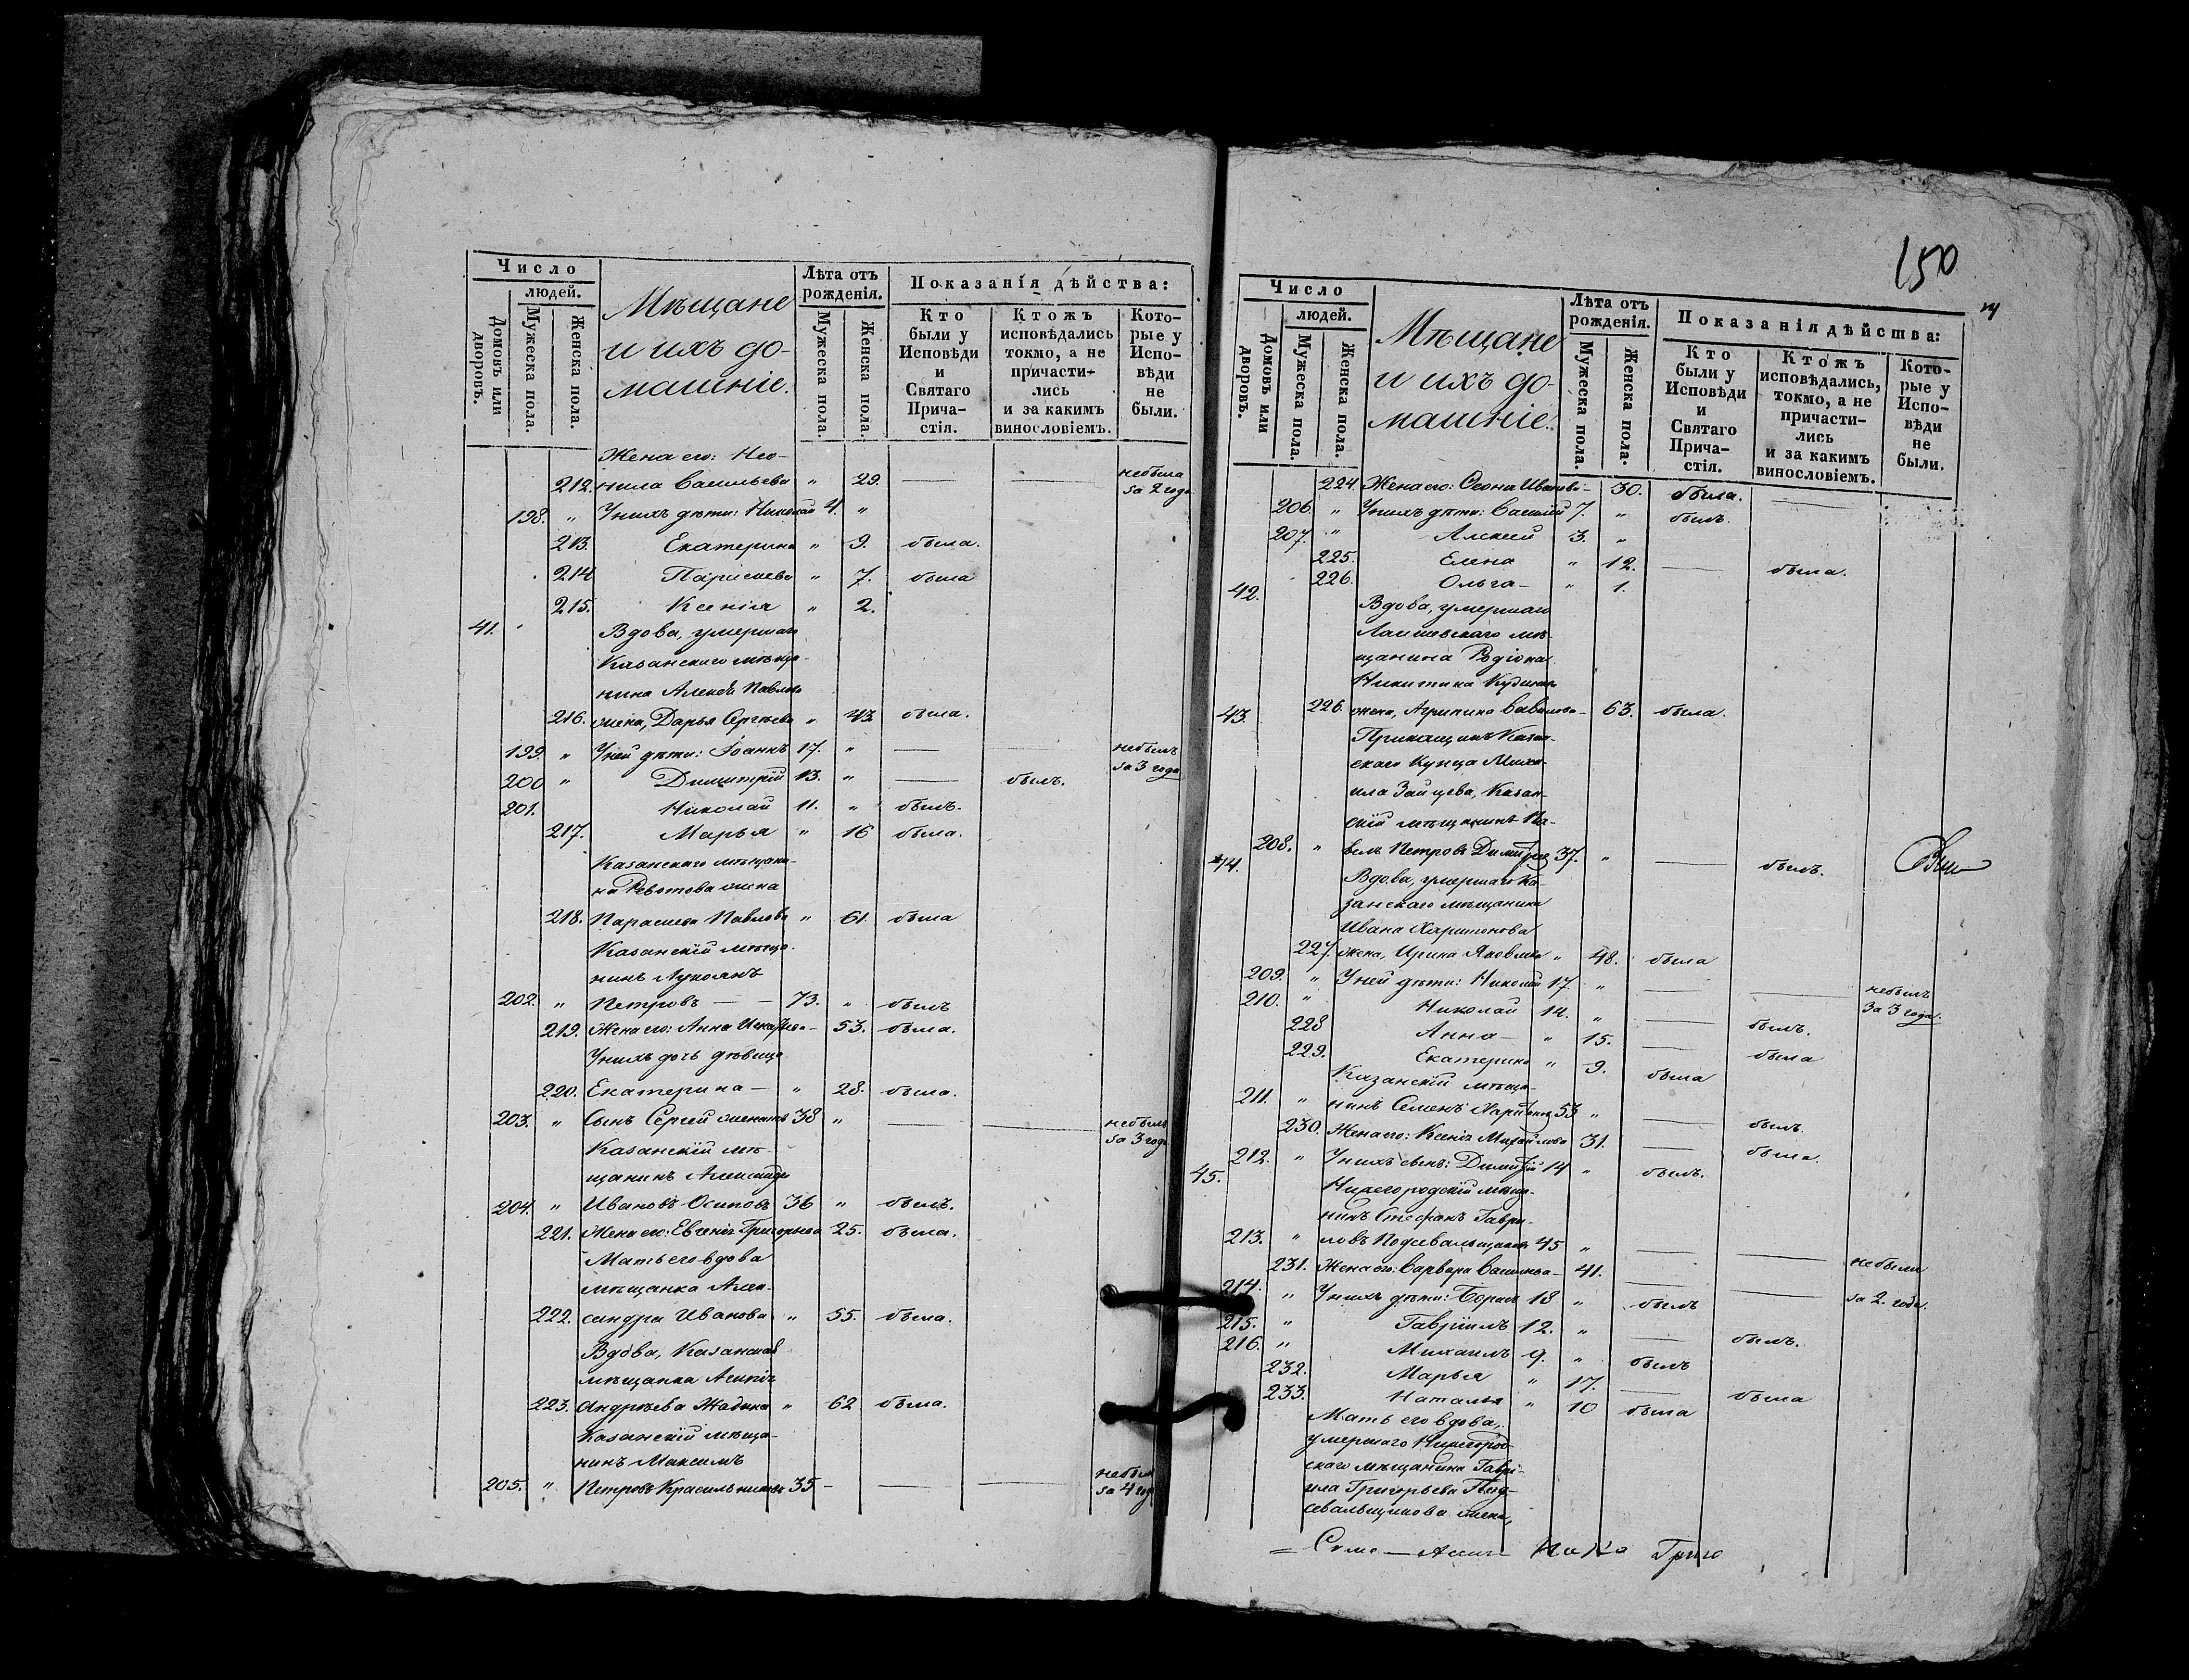 Число
людей.
Домовъ или дворовъ.
Мужеска пола.
Женска пола.
Мѣщане
и ихъ до-
машніе.
Лѣта отъ
рожденія.
Мужеска пола.
Женска пола.
Показанія дѣйства:
Кто были у Исповѣди и Святаго Прича-стія.
Ктожъ исповѣдались токмо, а не причасти-лись и за какимъ винословіемъ.
Кото-рые у Испо-вѣди не были.
Жена его: Нео-
212. нила Васильева " 29. — — небыла за 2 года
198. " Унихъ дѣти: Николай 4. "
213. Екатерина " 9. была.
214 Параскева " 7. была
215. Ксенія " 2.
41. Вдова, умершаго
Казанскаго мѣща-
нина Алексѣя Павлова
216. жена, Дарья Сергѣева " 43 была.
199. " Уней дѣти: Іоаннъ 17. " — — небылъ за 3 года
200 " Димитрій 13. " — былъ.
201. Николай 11. " былъ.
217. Марья " 16 была.
Казанскаго мѣщани-
на жена
218. Параскева Павлова " 61. была
Казанскій мѣща-
нинъ Лукоянъ
202. " Петровъ — — 73. " былъ
219. Жена его: Анна — 53. была.
Унихъ дочь дѣвица
220. Екатерина — " 28. была.
203. " Сынъ Сергей женатъ 38 " — — небылъ за 3 года
Казанскій мѣ-
щанинъ Александръ
204. " Ивановъ Осиповъ 36 " былъ.
221. Жена его: Евгенія Григорьева 25. была.
Мать его вдова
мѣщанка Алек-
222. сандра Иванова " 55. была.
Вдова, Казанская
мѣщанка
223. Андреева Жадина " 62 была.
Казанскій мѣща-
нинъ Максимъ
205. " Петровъ Красильниковъ 35 - — — небылъ за 4 года
150
Число
людей.
Домовъ или дворовъ.
Мужеска пола.
Женска пола.
Мѣщане
и ихъ до-
машніе.
Лѣта отъ
рожденія.
Мужеска пола.
Женска пола.
Показанія дѣйства:
Кто были у Исповѣди и Святаго Прича-стія.
Ктожъ исповѣдались, токмо, а не причасти-лись и за какимъ винословіемъ.
Кото-рые у Испо-вѣди не были.
224. Жена его: Иванова — 30. была. —
206. " Унихъ дѣти: Василій 7. " былъ.
207. " Алексей 3. "
225. Елена " 12. — была.
226. Ольга — " 1.
42. Вдова, умершаго
Лаишевскаго мѣ-
щанина Родіона
Никитина
226. жена, Агрипина Вавилова — 63. была.
43. Прикащикъ Казан-
скаго Купца Миха-
ила Зайцева, Казан-
скій мѣщанинъ Па-
208. " велъ Петровъ 37. " — былъ.
44. Вдова, умершаго Ка-
занскаго мѣщанина
Ивана Харитонова
227. жена, Ирина Яковлева " 48. была
209. " Уней дѣти: Николай 17. " — — небылъ за 3 года.
210. " Николай 14. " — былъ.
228 Анна — " 15. — была
229. Екатерина " 9. была
Казанскій мѣща-
211. " нинъ Семенъ Харитоновъ 53 " — былъ.
230. Жена его: Ксенія Михайлова 31. — была.
212. " Унихъ сынъ: Димитрій 14 " былъ.
45. Нижегородскій мѣща-
нинъ Стефанъ Гаври-
213. " ловъ Подсевальщиковъ 45 " — —
231. Жена его: Варвара Васильева — 41. — — небыли за 2. года.
214. " Унихъ дѣти: Борисъ 18 " былъ —
215. " Гавріилъ 12. " — былъ.
216. " Михаилъ 9. " былъ
232. Марья " 17. — была
233. Наталья " 10 была
Мать его вдова,
умершаго Нижегород-
скаго мѣщанина Гаврі-
ила Григорьева Под-
севальщикова жена,